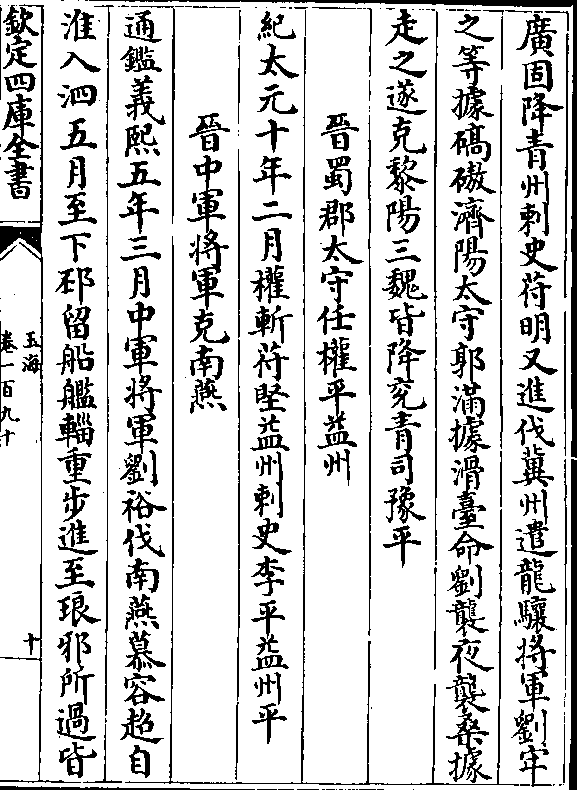 廣固降青州刺史苻明又進伐冀州遣龍驤將軍劉牢
之等據碻磝濟陽太守郭滿據滑臺命劉襲夜襲桑據
走之遂克黎陽三魏皆降兖青司豫平
晉蜀郡太守任權平益州
紀太元十年二月權斬苻堅益州刺史李平益州平
晉中軍將軍克南燕
通鑑義熙五年三月中軍將軍劉裕伐南燕慕容超自
淮入泗五月至下邳留船艦輜重步進至琅邪所過皆
欽定四庫全書
玉海
卷一百九十
十